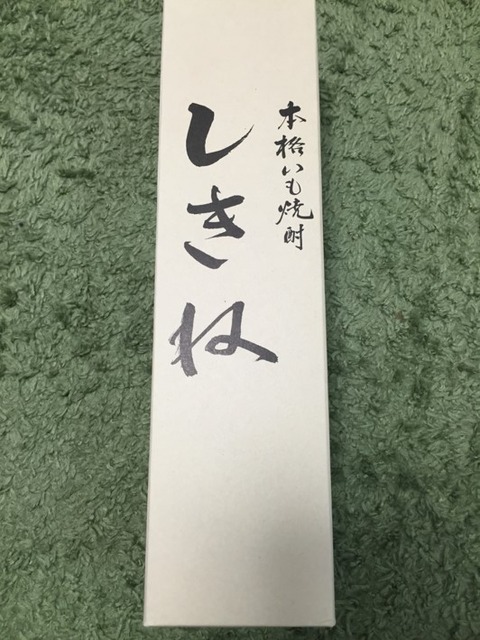 本格いも焼酎
しきね